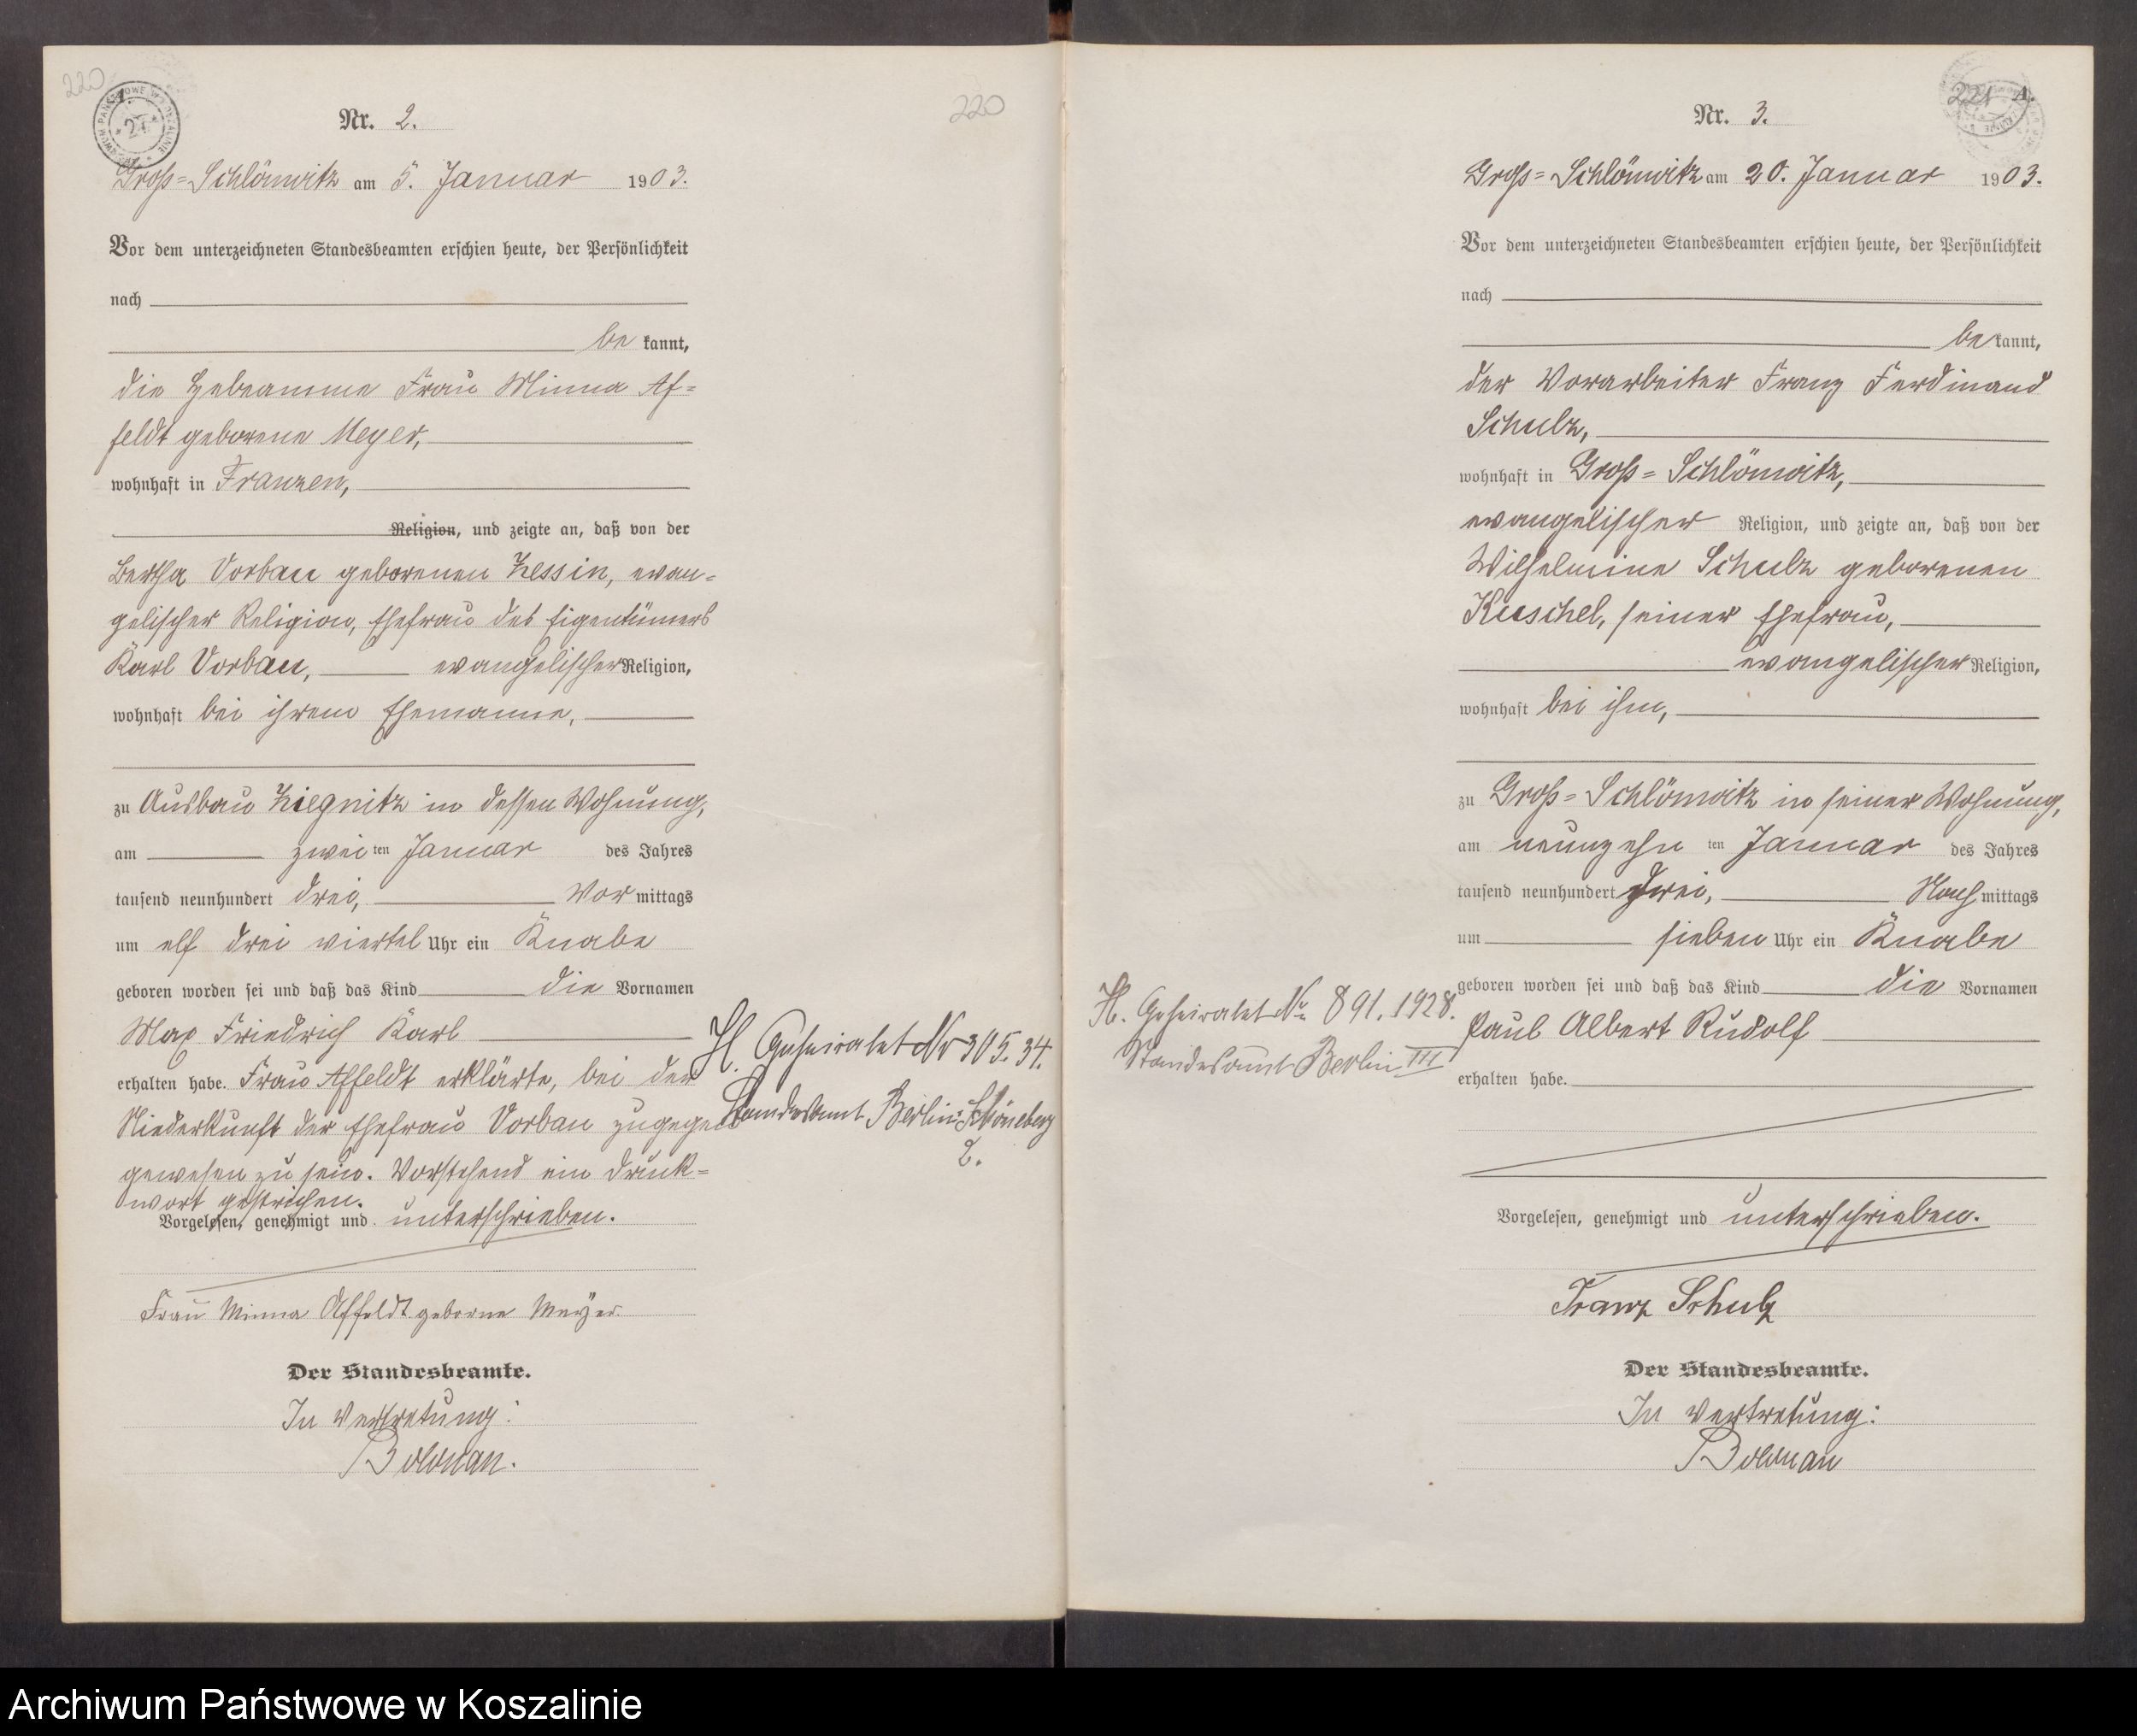 220
Nr. 2.
220
Groß=Schlönwitz am 5. Januar 1903.
Vor dem unterzeichneten Standesbeamten erschien heute, der Persönlichkeit
nach
be kannt,
die Hebeamme Frau Minna Af=
feldt geborene Meyer,
wohnhaft in Franzen,
Religion, und zeigte an, daß von der
Bertha Vorbau geborenen Zessin, evan=
gelischer Religion, Ehefrau des Eigentümers
Karl Vorbau, evangelischer Religion,
wohnhaft bei ihrem Ehemanne,
zu Ausbau Ziegnitz in dessen Wohnung,
am zwei ten Januar des Jahres
tausend neunhundert drei, Vor mittags
um elf drei viertel Uhr ein Knabe
geboren worden sei und daß das Kind die Vornamen
Max Friedrich Karl
erhalten habe. Frau Affeldt erklärte, bei der
Niederkunft der Ehefrau Vorbau zugegen
gewesen zu sein. Vorstehend ein Druck=
wort gestrichen.
Vorgelesen, genehmigt und unterschrieben.
Frau Minna Affeldt geborne Meyer
Der Standesbeamte.
In Vertretung:
H. Geheiratet Nr 305. 34.
Standesamt Berlin=Schöneberg
2.
221
Nr. 3.
Groß=Schlönwitz am 20. Januar 1903.
Vor dem unterzeichneten Standesbeamten erschien heute, der Persönlichkeit
nach
be kannt,
der Vorarbeiter Franz Ferdinand
Schulz,
wohnhaft in Groß=Schlönwitz,
evangelischer Religion, und zeigte an, daß von der
Wilhelmine Schulz geborenen
Kuschel, seiner Ehefrau,
evangelischer Religion,
wohnhaft bei ihm,
zu Groß=Schlönwitz in seiner Wohnung,
am neunzehn ten Januar des Jahres
tausend neunhundert drei, Nach mittags
um sieben Uhr ein Knabe
geboren worden sei und daß das Kind die Vornamen
Paul Albert Rudolf
erhalten habe.
Vorgelesen, genehmigt und unterschrieben.
Franz Schulz
Der Standesbeamte.
In Vertretung:
H. Geheiratet Nr. 891. 1928.
Standesamt Berlin III
Archiwum Państwowe w Koszalinie